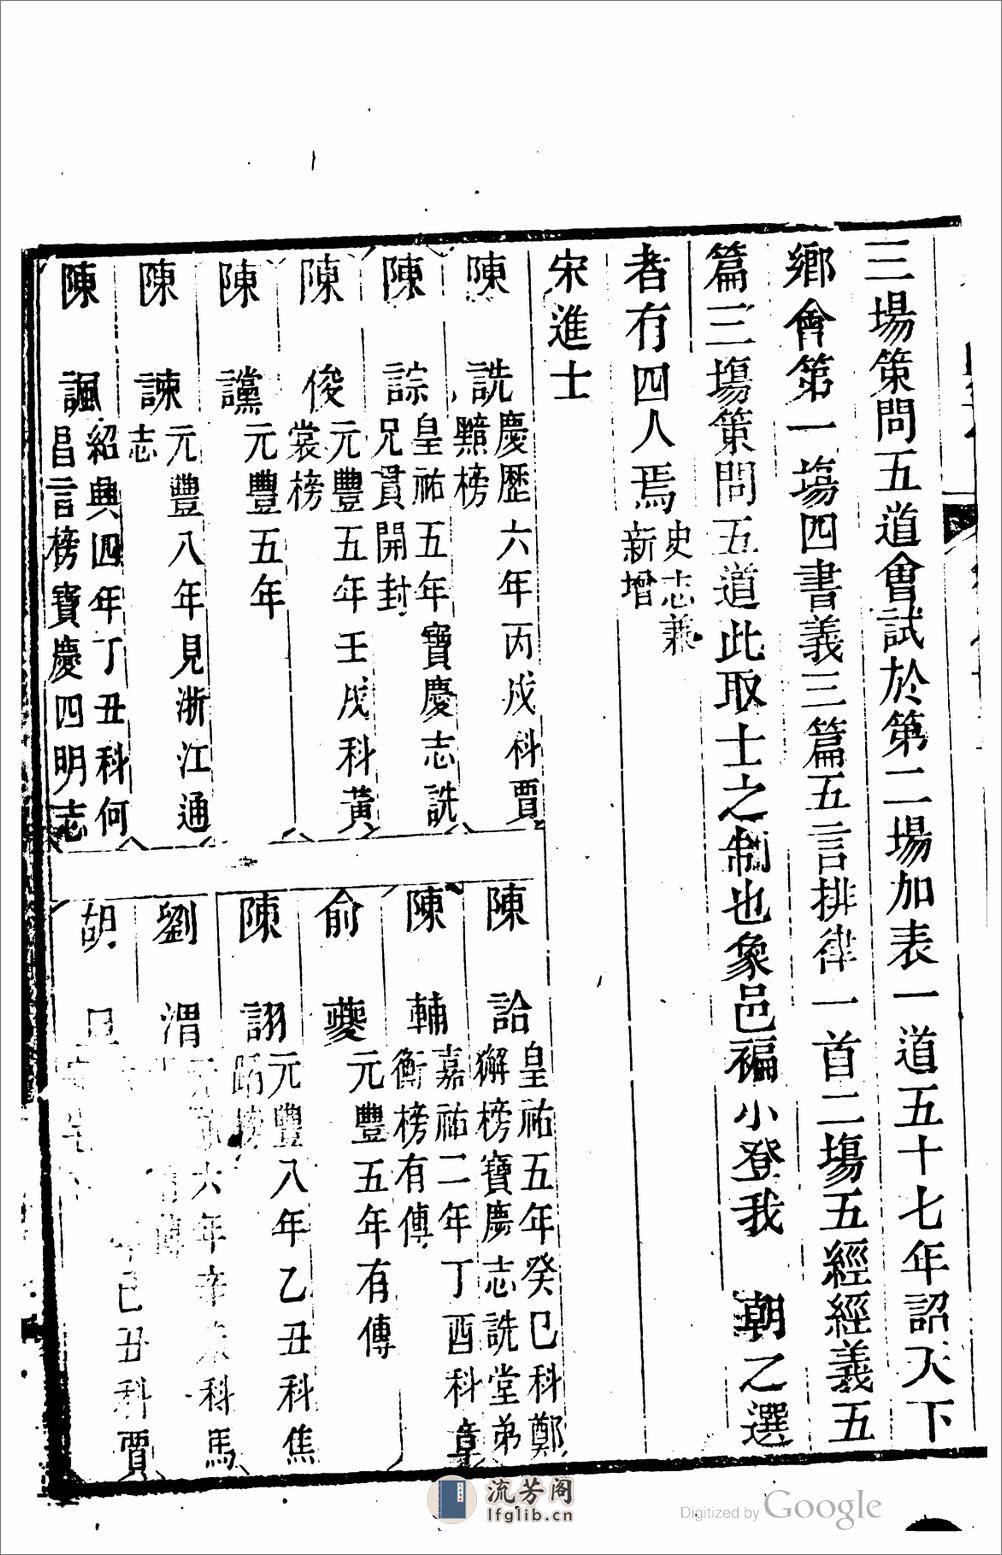 三場策問五道會試於第二場加表一道五十七年詔天下
鄉會第一塲四書義三篇五言排律一首二塲五經經義五
篇三塲策問五道此取士之制也象邑褊小登我 朝之選
者有四人焉史志兼
新增
宋進士
陳 詵 慶歷六年丙戌科賈
黯榜
陳 誴 皇祐五年寶慶志詵
兄貫開封
陳 俊 元豐五年壬戌科黃
裳榜
陳 讜 元豐五年
陳 諫 元豐八年見浙江通
志
陳 諷 紹興四年丁丑科何
昌言榜寶慶四明志
陳 詥 皇祐五年癸巳科鄭
獬榜寶慶志詵堂弟
陳 輔 嘉祐二年丁酉科章
衡榜有傳
俞 夔 元豐五年有傳
陳 詡 元豐八年乙丑科焦
蹈榜
劉 渭 六年辛未科馬
傳
胡 己丑科賈
流芳阁
lfglib.cn
Digitized by Google